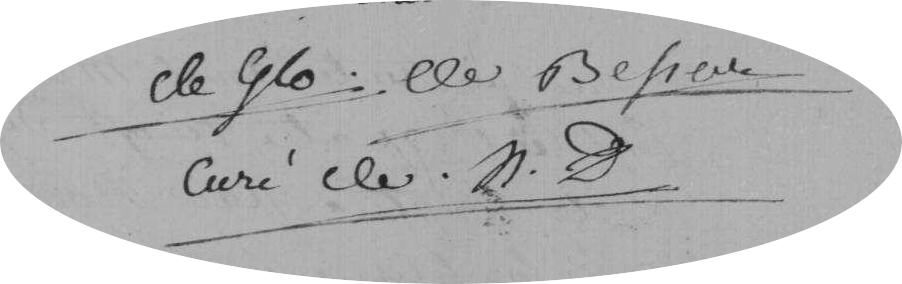 de Glo. de Besse
Curé de. N. D